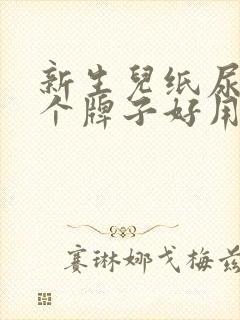 新生兒纸尿
个牌子好用
赛琳娜戈梅兹